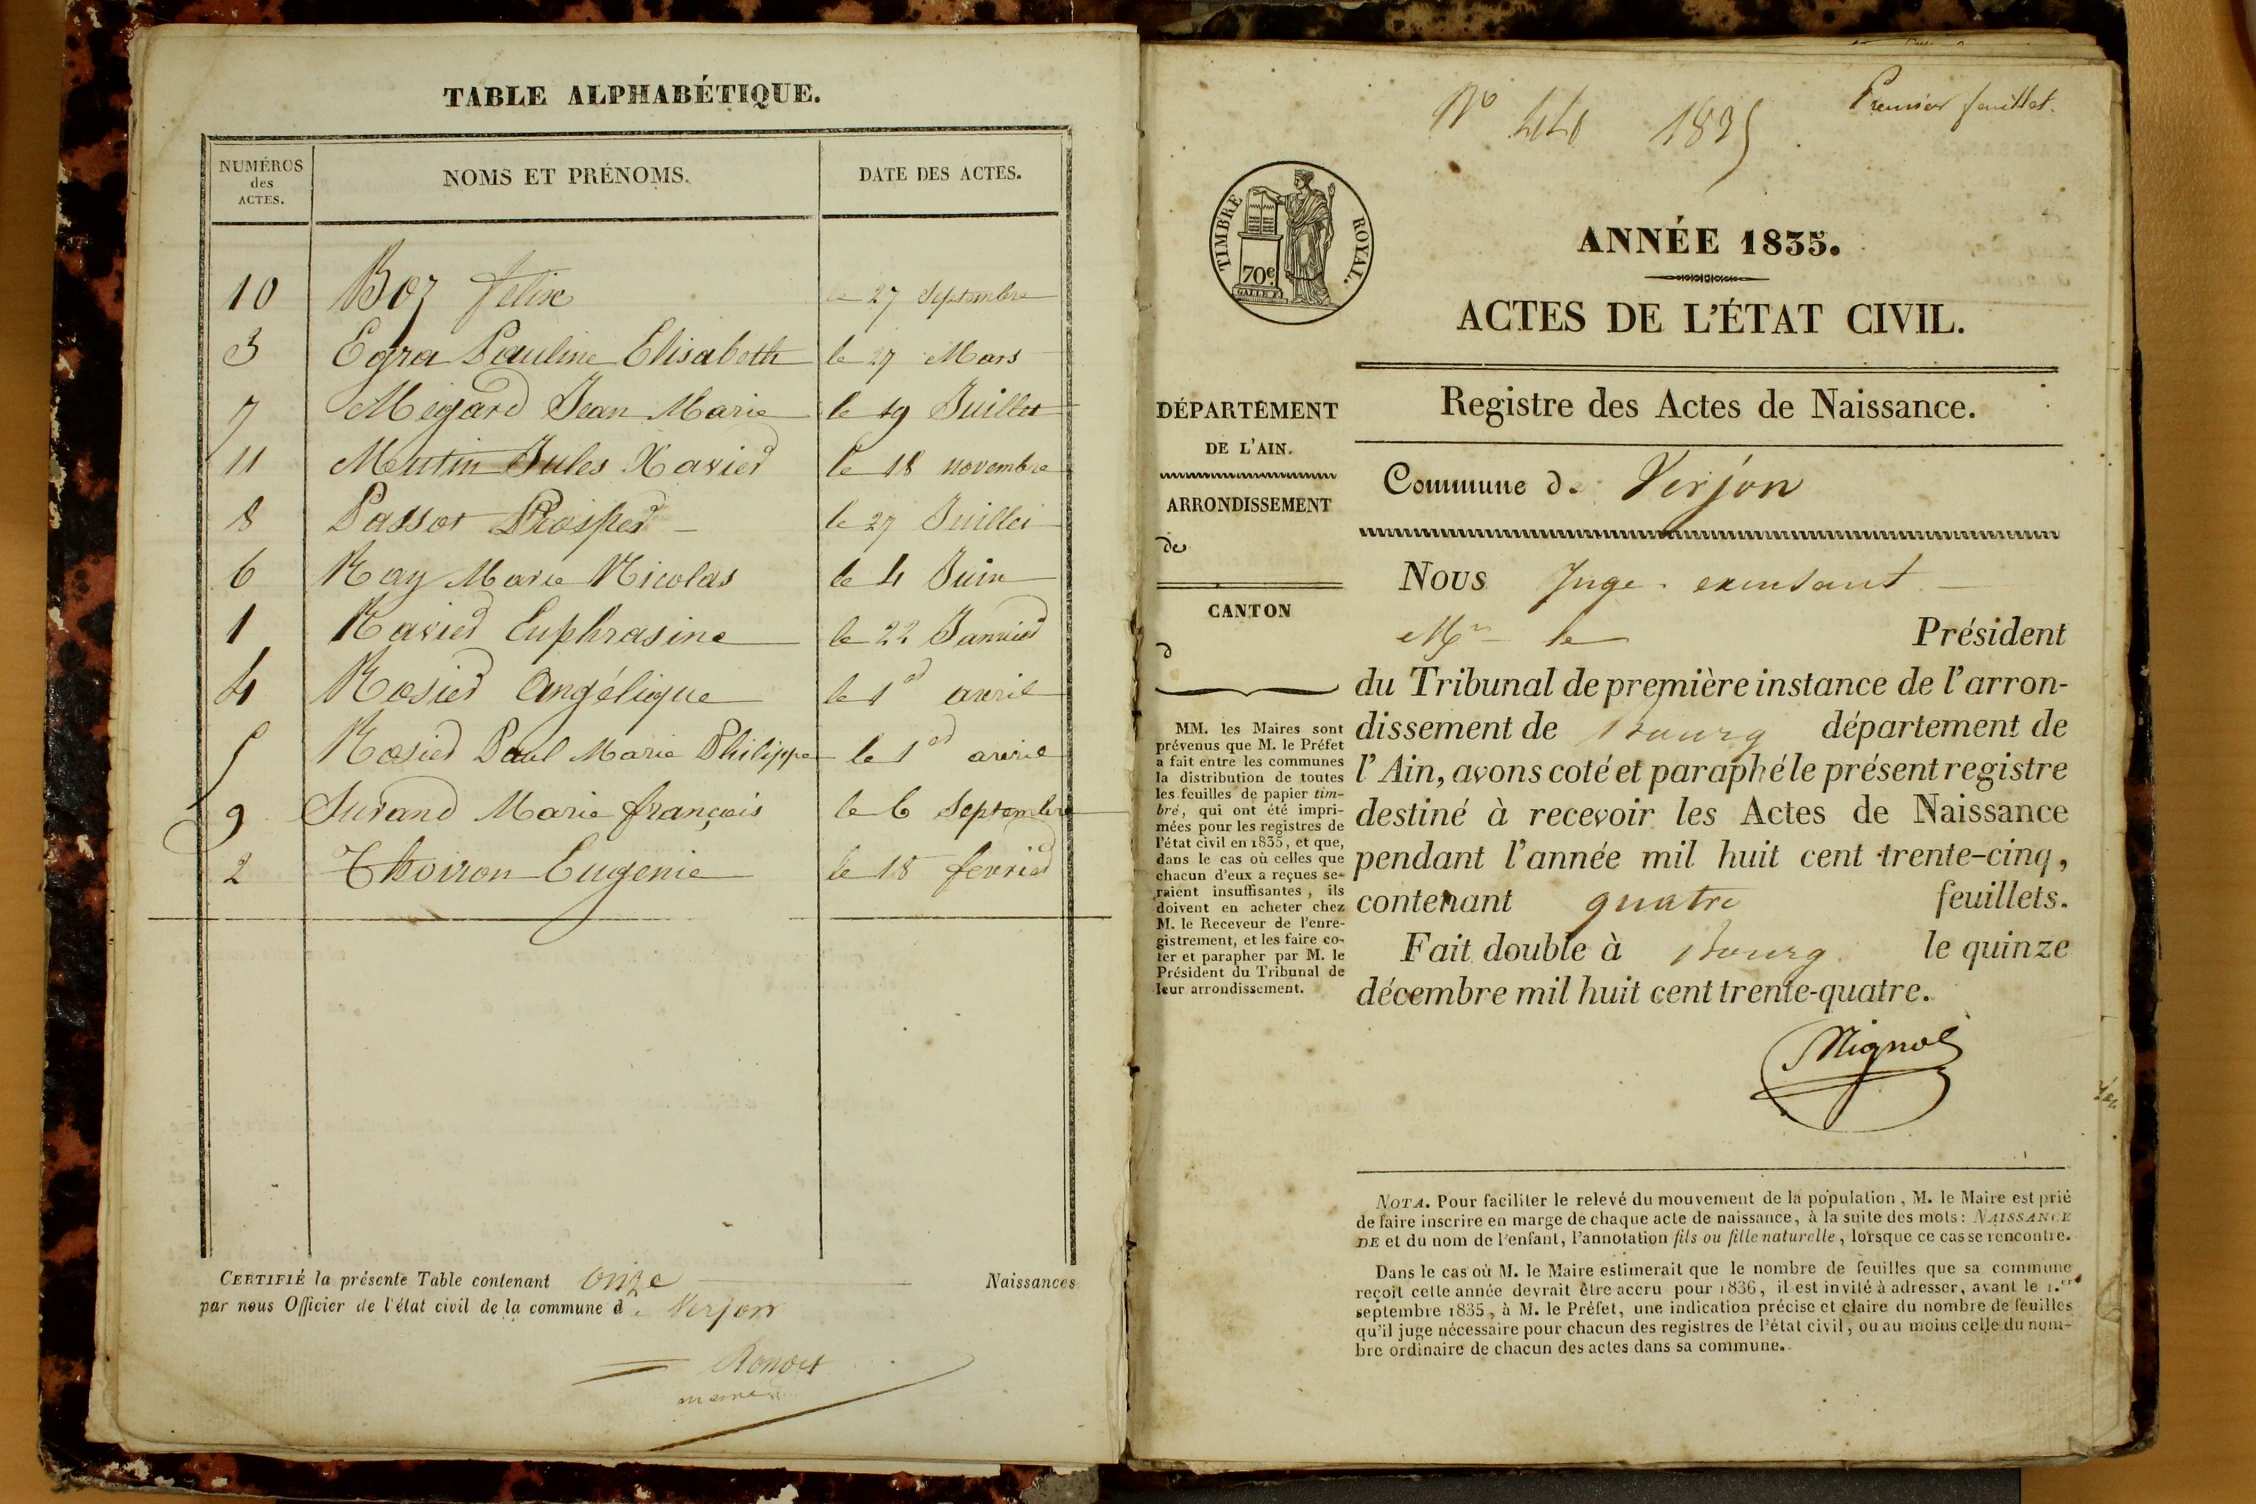 TABLE ALPHABÉTIQUE.
NUMÉROS des ACTES. NOMS ET PRÉNOMS. DATE DES ACTES.
10 Boz felix le 27 Septembre
3 Egra Pauline Elisabeth le 27 Mars
7 Megard Jean Marie le 19 Juillet
11 Mentin Jules Xavier le 18 novembre
8 Passot Prosper le 27 Juillet
6 Ray Marie Nicolas le 4 Juin
1 Ravier Euphrasine le 22 Janvier
4 Rosier Angélique le 1er avril
5 Rosier Paul Marie Philippe le 1er avril
9 Surand Marie françois le 6 Septembre
2 Thoiron Eugenie le 18 fevrier
CERTIFIÉ la présente Table contenant onze Naissances
par nous Officier de l'état civil de la commune de Verjon
maire
Nº 440 1835
Premier feuillet.
TIMBRE ROYAL.
70c
GALLE F.
ANNÉE 1835.
ACTES DE L'ÉTAT CIVIL.
Registre des Actes de Naissance.
DÉPARTEMENT
DE L'AIN.
ARRONDISSEMENT
de
CANTON
d
MM. les Maires sont
prévenus que M. le Préfet
a fait entre les communes
la distribution de toutes
les feuilles de papier tim-
bré, qui ont été impri-
mées pour les registres de
l'état civil en 1835, et que,
dans le cas où celles que
chacun d'eux a reçues se-
raient insuffisantes, ils
doivent en acheter chez
M. le Receveur de l'enre-
gistrement, et les faire co-
ter et parapher par M. le
Président du Tribunal de
leur arrondissement.
Commune de Verjon
Nous Juge
Mr le Président
du Tribunal de première instance de l'arron-
dissement de Bourg département de
l'Ain, avons coté et paraphé le présent registre
destiné à recevoir les Actes de Naissance
pendant l'année mil huit cent trente-cinq,
contenant quatre feuillets.
Fait double à Bourg le quinze
décembre mil huit cent trente-quatre.
NOTA. Pour faciliter le relevé du mouvement de la population, M. le Maire est prié
de faire inscrire en marge de chaque acte de naissance, à la suite des mots: NAISSANCE
DE et du nom de l'enfant, l'annotation fils ou fille naturelle, lorsque ce cas se rencontre.
Dans le cas où M. le Maire estimerait que le nombre de feuilles que sa commune
reçoit cette année devrait être accru pour 1836, il est invité à adresser, avant le 1.er
septembre 1835, à M. le Préfet, une indication précise et claire du nombre de feuilles
qu'il juge nécessaire pour chacun des registres de l'état civil, ou au moins celle du nom-
bre ordinaire de chacun des actes dans sa commune.